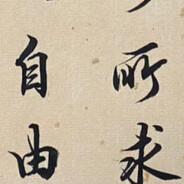 所求
自由